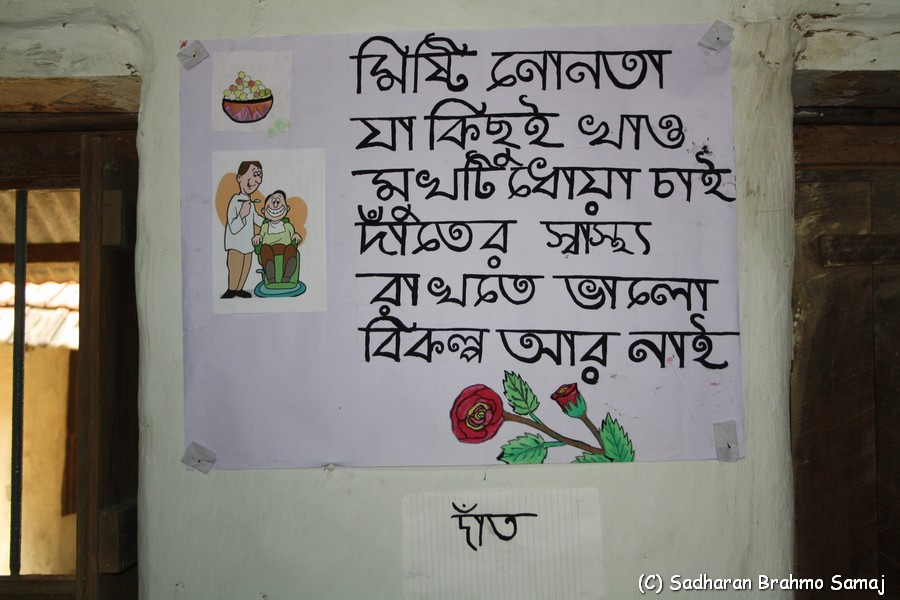 মিষ্টি নোনতা
যা কিছুই খাও
মুখটি ধোয়া চাই
দাঁতের স্বাস্থ্য
রাখতে ভালো
বিকল্প আর নাই
দাঁত
(C) Sadharan Brahmo Samaj